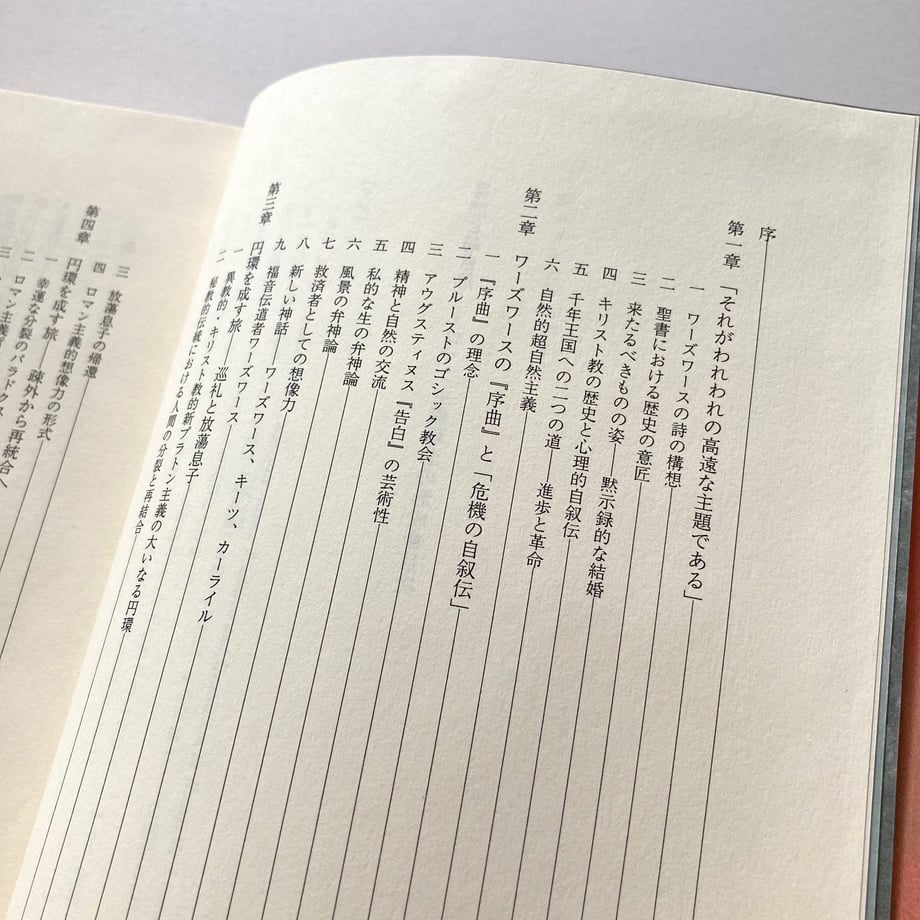 序
第一章 「それがわれわれの高遠な主題である」
一 ワーズワースの詩の構想
二 聖書における歴史の意匠
三 来たるべきものの姿――黙示録的な結婚
四 キリスト教の歴史と心理的自叙伝
五 千年王国への二つの道――進歩と革命
六 自然的超自然主義
第二章 ワーズワースの『序曲』と「危機の自叙伝」
一 『序曲』の理念
二 プルーストのゴシック教会
三 アウグスティヌス『告白』の芸術性
四 精神と自然の交流
五 私的な生の弁神論
六 風景の弁神論
七 救済者としての想像力
八 新しい神話――ワーズワース、キーツ、カーライル
九 福音伝道者ワーズワース
第三章 円環を成す旅――巡礼と放蕩息子
一 異教的・キリスト教的新プラトン主義の大いなる円環
二 秘教的伝統における人間の分裂と再結合
三 放蕩息子の帰還
四 ロマン主義的想像力の形式
第四章 円環を成す旅――疎外から再統合へ
一 幸運な分裂のパラドックス
二 ロマン主義
三